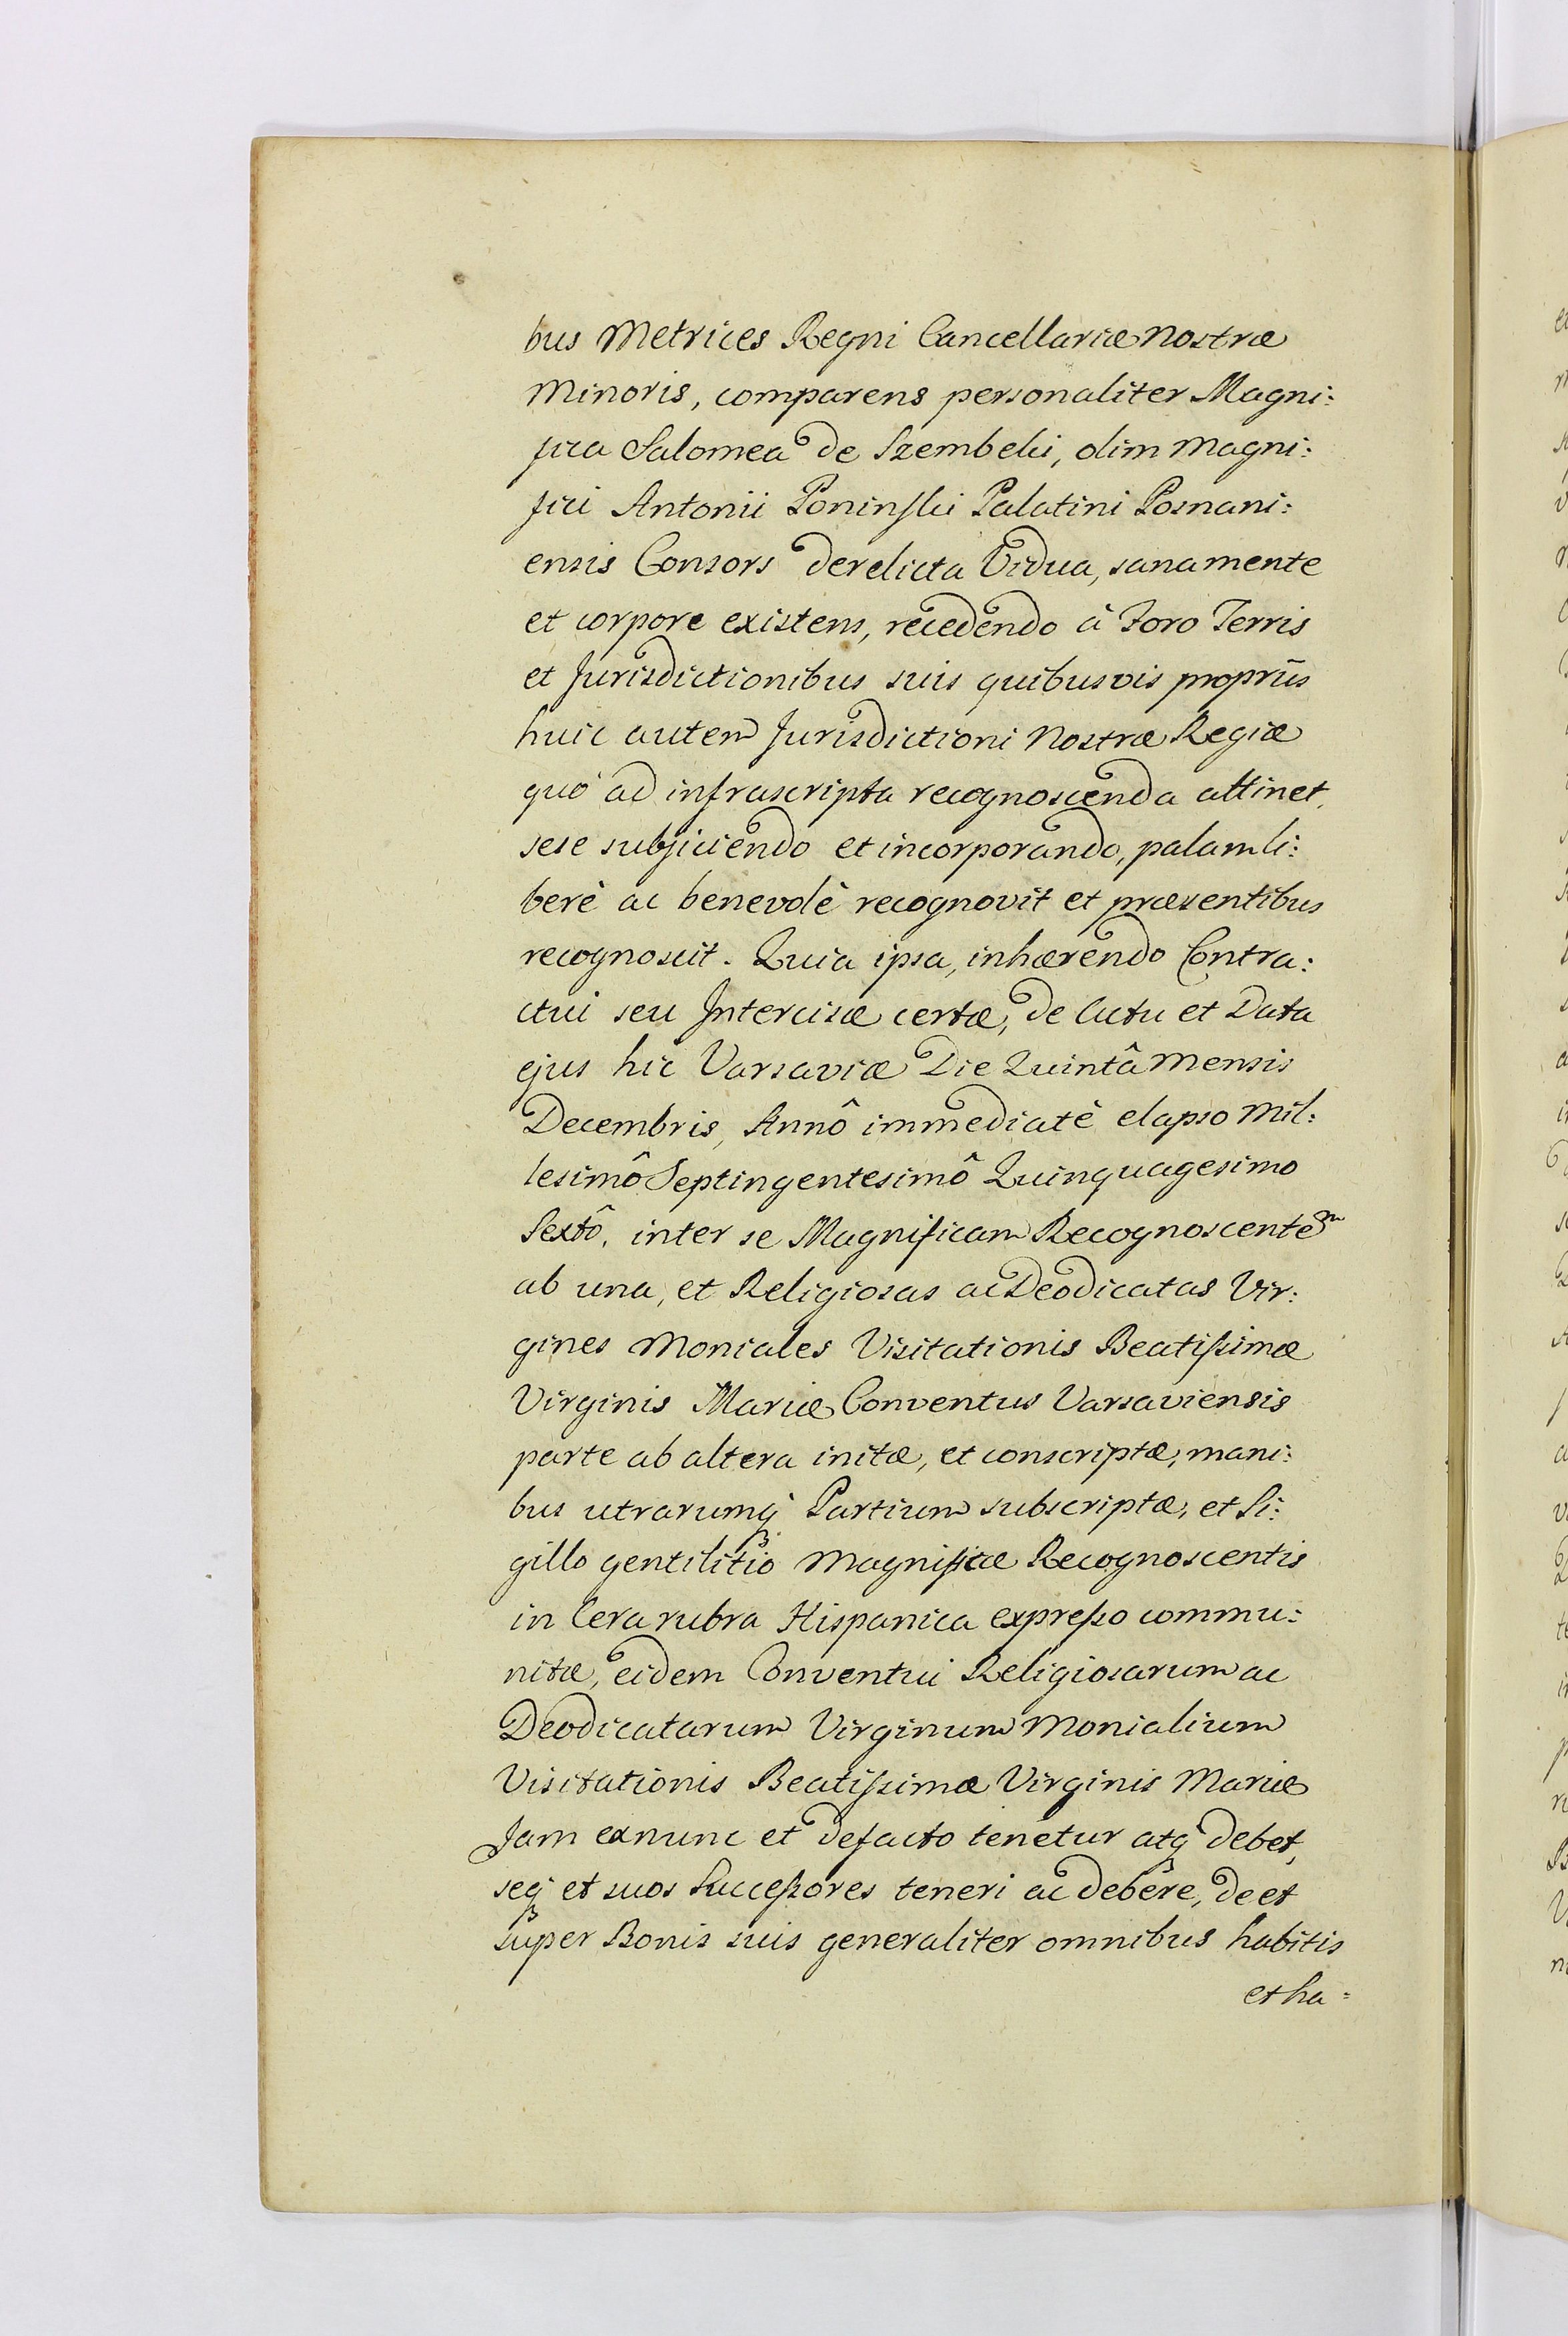 bus Metrices Regni Cancellariæ Nostræ
Minoris, comparens personaliter Magni:
fica Salomea de Szembeki, olim Magni:
fici Antonii Poninski Palatini Posnani:
ensis Consors derelicta Vidua, sana mente
et corpore existens, recedendo à Foro Terris
et Jurisdictionibus suis quibusvis propriis
huic autem Jurisdictioni Nostræ Regiæ
quò ad infrascripta recognoscenda attinet,
sese subjiciendo et incorporando, palam li:
berè ac benevolè recognovit et præsentibus
recognoscit. Quia ipsa, inhærendo Contra:
ctui seu Intercisæ certæ, de Actu et Data
ejus hic Varsaviæ Die Quintâ Mensis
Decembris, Annô immediatè elapso Mil:
lesimô Septingentesimô Quinquagesimo
Sextô, inter se Magnificam Recognoscentem
ab una, et Religiosas ac Deodicatas Vir:
gines Moniales Visitationis Beatissimæ
Virginis Mariæ Conventus Varsaviensis
parte ab altera initæ, et conscriptæ, mani:
bus utrarumq Partium subscriptæ, et Si:
gillo gentilitio Magnificæ Recognoscentis
in Cera rubra Hispanica expresso commu:
nitæ, eidem Conventui Religiosarum ac
Deodicatarum Virginum Monialium
Visitationis Beatissimæ Virginis Mariæ
Jam exnunc et defacto tenetur atq debet,
seq et suos Successores teneri ac debere, de et
super Bonis suis generaliter omnibus habitis
et ha=